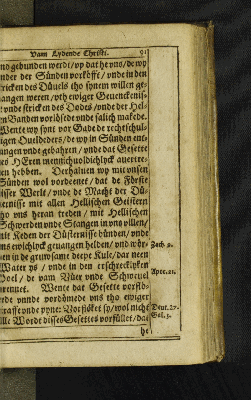 Vam Lydende Christi. 91
nd gebunden werdt/ vp dat he vns/ de wy
nder der Sünden vorköfft/ vnde in den
ricken des Düuels tho synem willen ge-
angen weren/ vth ewiger Geuencknis-
vnde stricken des Dodes/ vnde der Hel-
en Banden vorlösede vnde salich makede.
Wente wy synt vor Gade de rechtschul-
igen Oueldeders/ de wy in Sünden ent-
angen vnde gebahren/ vnde dat Gesette
es HEren mennichuoldichlyck auertre-
en hebben. Derhaluen wy mit vnsen
Sünden wol vordenet/ dat de Förste
isser Werlt/ vnde de Macht der Dü-
ternisse mit allen Hellischen Geistern
tho vns heran treden/ mit Hellischen
Schwerden vnde Stangen in vns villen/
mit Keden der Düsternisse bünden/ vnde
ns ewichlyck geuangen helden/ vnd wör-
en in de gruwsame deepe Kule/ dar neen
Water ys/ vnde in den erschrecklyken
Poel/ de vam Vüer vnde Schweuel
rennet. Wente dat Gesette vorflö-
ede vnnde vordömede vns tho ewiger
traffe vnde pyne: Vorflöket sy/ wol nicht
lle Worde disses Gesettes vorfüllet/ dat
he
Zach. 9.
Apoc. 21.
Deut. 27.
Gal. 3.